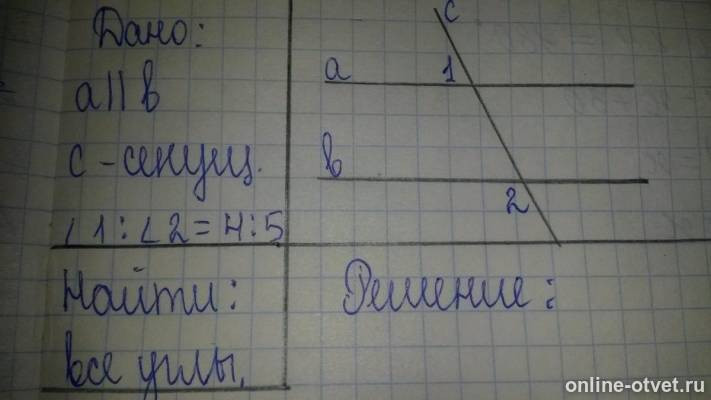 Дано:
a || b
c - секущ.
∠1 : ∠2 = 4 : 5
Найти:
все углы.
c
a
1
b
2
Решение:
online-otvet.ru